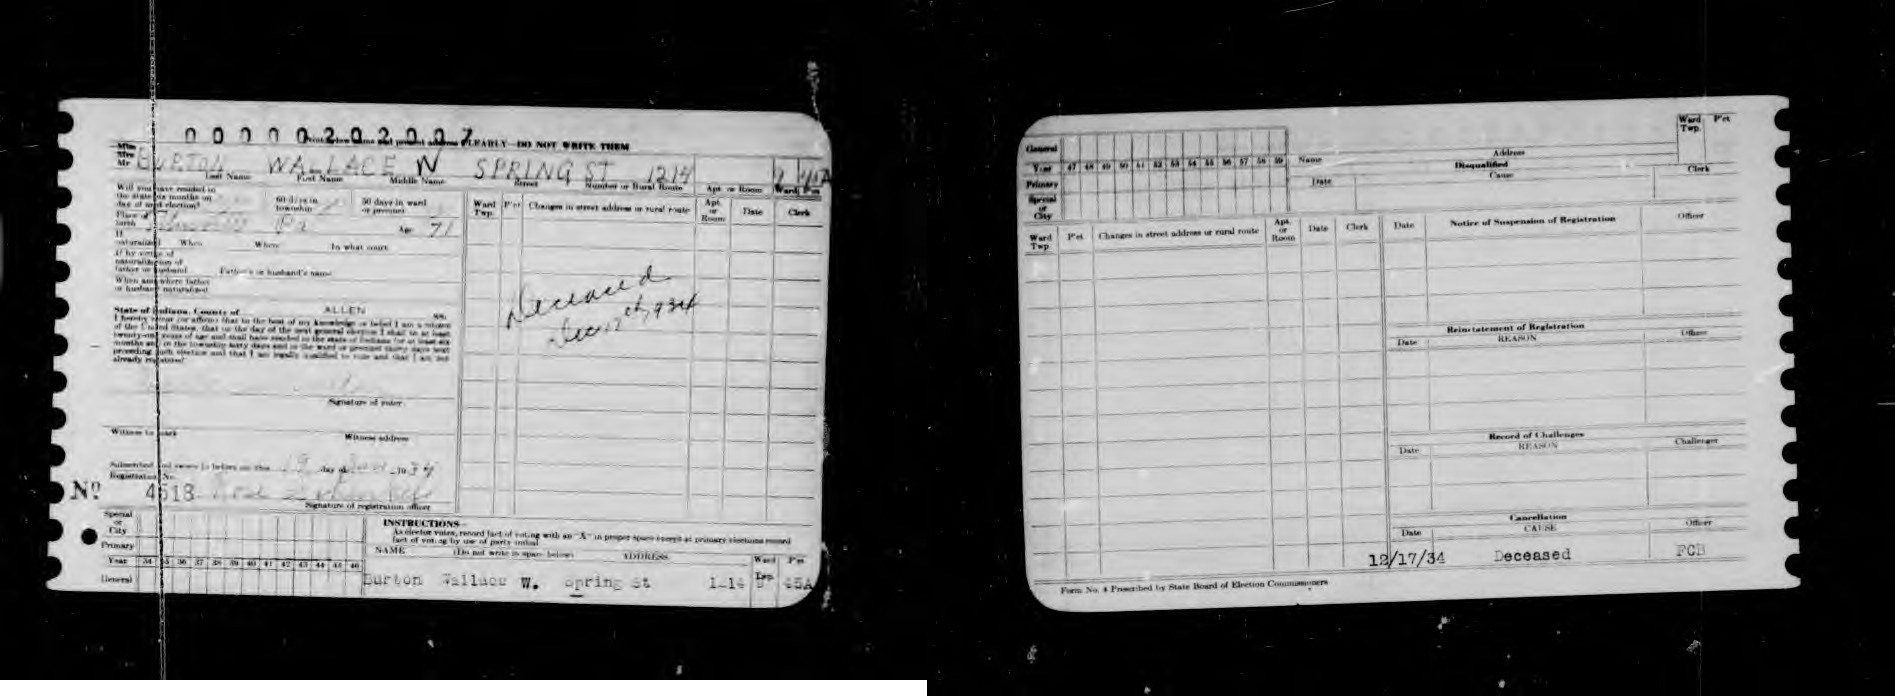 00000202007
Print below name and present address CLEARLY—DO NOT WRITE THEM
Miss
Mrs
Mr BURTON WALLACE W SPRING ST 1214
Last Name First Name Middle Name Street Number or Rural Route Apt. or Room Ward Pct
Will you have resided in the state six months on day of next election? 60 days in township 30 days in ward or precinct
Place of birth Pa Age 71
If naturalized When Where In what court
If by virtue of naturalization of father or husband Father's or husband's name
When and where father or husband naturalized
State of Indiana, County of ALLEN SS:
I hereby swear (or affirm) that to the best of my knowledge or belief I am a citizen
of the United States, that on the day of the next general election I shall be at least
twenty-one years of age and shall have resided in the state of Indiana for at least six
months and in the township sixty days and in the ward or precinct thirty days next
preceding such election and that I am legally qualified to vote and that I am not
already registered
Signature of voter
Witness to mark Witness address
Subscribed and sworn to before me this 19 day of 1934
Registration No.
No 4518
Signature of registration officer
Ward Twp. P'ct Changes in street address or rural route Apt. or Room Date Clerk
Deceased
Dec 17th 1934
Special or City
Primary
Year 34 35 36 37 38 39 40 41 42 43 44 45 46
General
INSTRUCTIONS—
As elector votes, record fact of voting with an "X" in proper space except at primary elections record
fact of voting by use of party initial
NAME (Do not write in space below) ADDRESS Ward Twp P'ct
Burton Wallace W. Spring St 1214 45A
General
Year 47 48 49 50 51 52 53 54 55 56 57 58 59
Primary
Special or City
Name Address Ward Twp. P'ct
Disqualified
Date Cause Clerk
Ward Twp. P'ct Changes in street address or rural route Apt. or Room Date Clerk
Date Notice of Suspension of Registration Officer
Reinstatement of Registration
Date REASON Officer
Record of Challenges
Date REASON Challenger
Cancellation
Date CAUSE Officer
12/17/34 Deceased FCB
Form No. 4 Prescribed by State Board of Election Commissioners